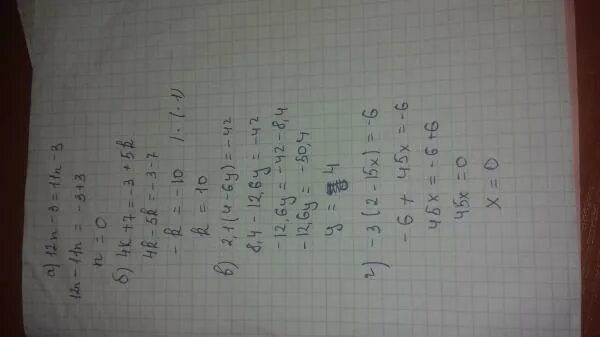 а) 12n - 3 = 11n - 3
12n - 11n = -3+3
n = 0
б) 4k + 7 = -3 + 5k
4k - 5k = -3 - 7
- k = -10 | · (-1)
k = 10
в) 2,1 (4 - 6y) = -42
8,4 - 12,6y = -42
-12,6y = -42 - 8,4
-12,6y = -50,4
y = 4
г) -3 (2 - 15x) = -6
-6 + 45x = -6
45x = -6 + 6
45x = 0
x = 0